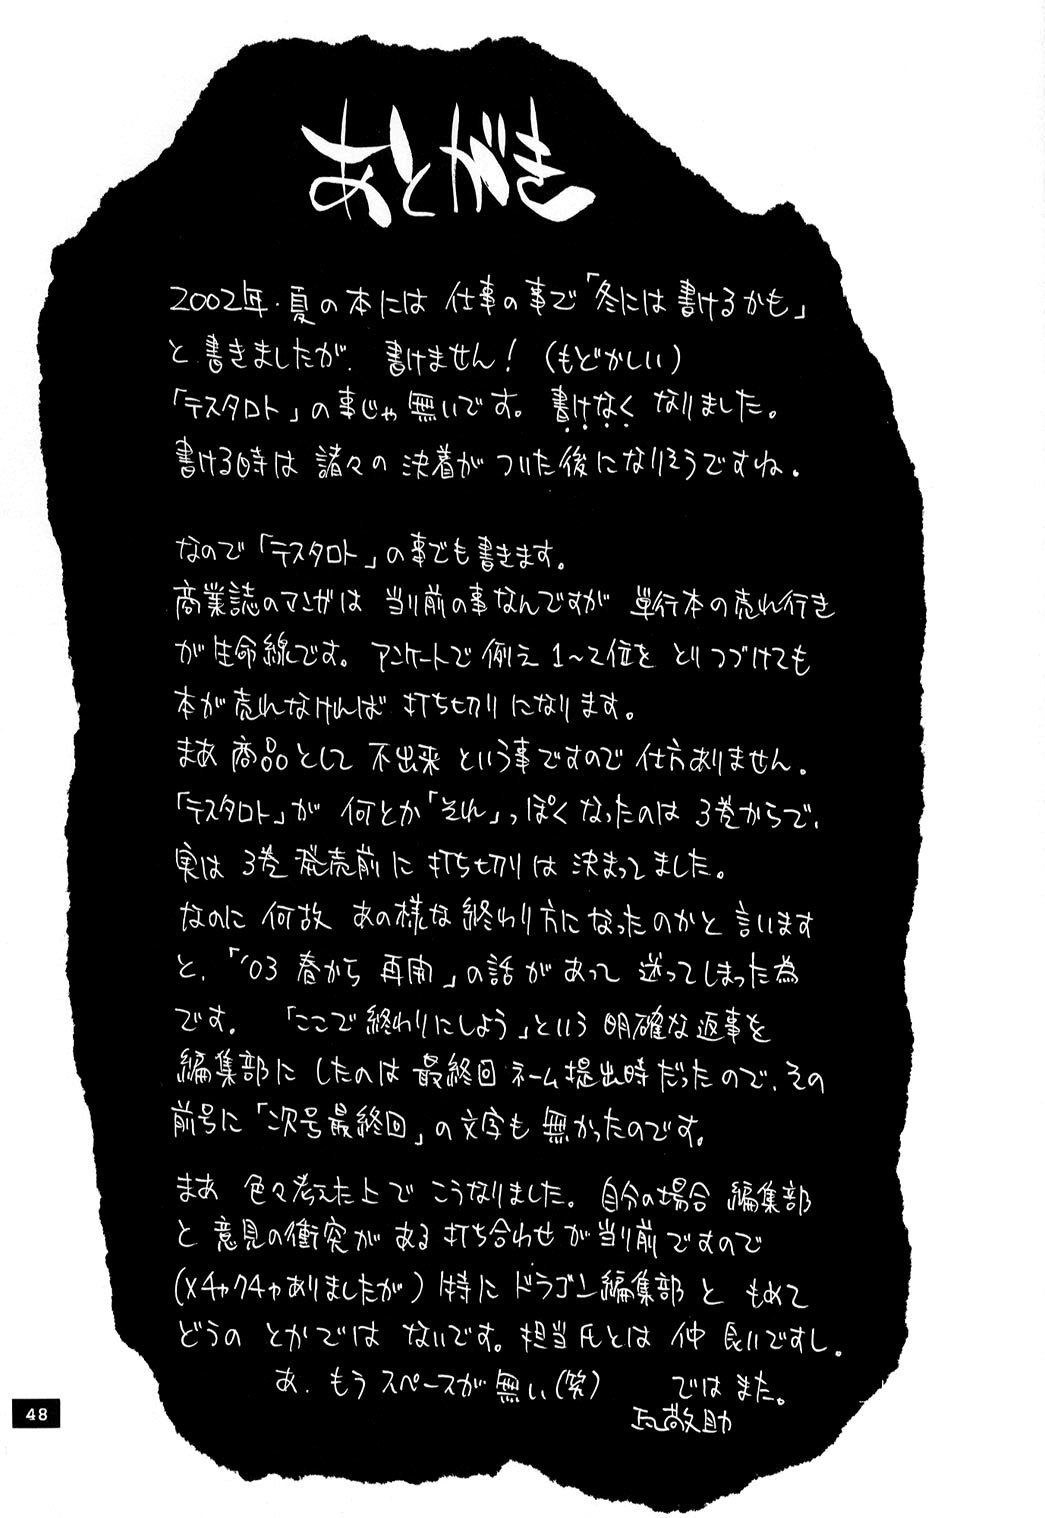 あとがき
2002年・夏の本には 仕事の事で「冬には書けるかも」
と書きましたが、書けません！（もどかしい）
「テスタロト」の事じゃ無いです。書けなくなりました。
書ける時は諸々の決着がついた後になりそうですね。
なので「テスタロト」の事でも書きます。
商業誌のマンガは 当り前の事なんですが 単行本の売れ行き
が生命線です。アンケートで例え1〜2位をとりつづけても
本が売れなければ打ち切りになります。
まあ商品として不出来という事ですので仕方ありません。
「テスタロト」が何とか「それ」っぽくなったのは3巻からで、
実は3巻発売前に打ち切りは決まってました。
なのに何故あの様な終わり方になったのかと言います
と、「'03春から再開」の話があって迷ってしまった為
です。「ここで終わりにしよう」という明確な返事を
編集部にしたのは最終回ネーム提出時だったので、その
前号に「次号最終回」の文字も無かったのです。
まあ色々考えた上でこうなりました。自分の場合編集部
と意見の衝突がある打ち合わせが当り前ですので
（メチャクチャありましたが）特にドラゴン編集部ともめて
どうのとかではないです。担当氏とは仲良いですし。
あ、もうスペースが無い（笑） ではまた。
敬助
48